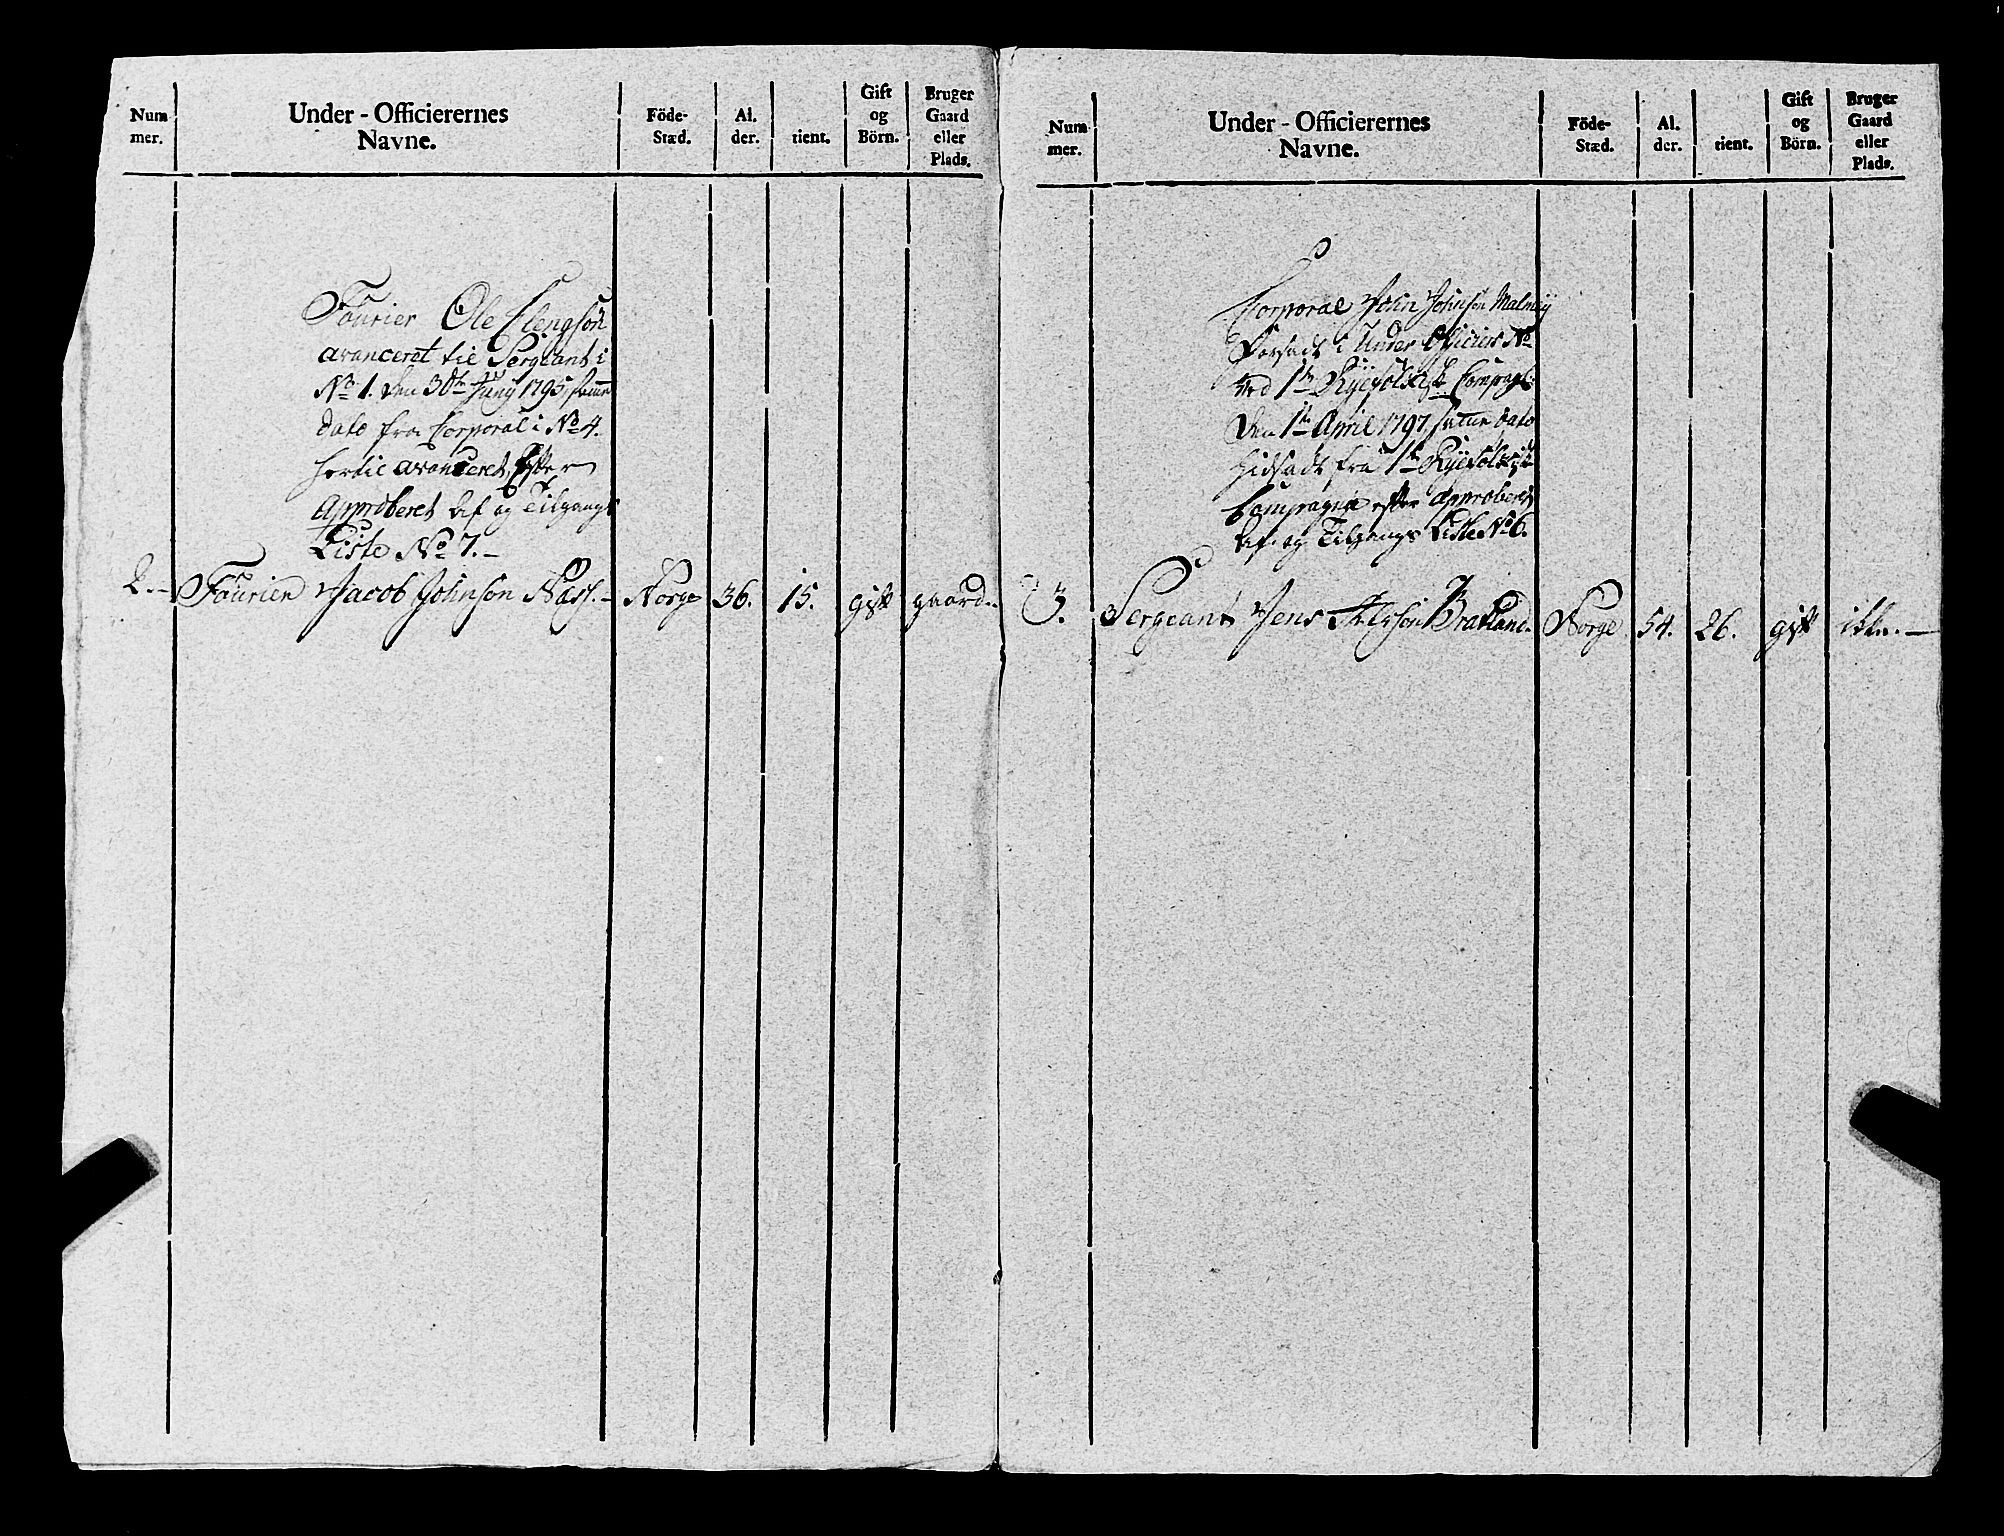 Num mer.
Under - Officierernes Navne.
Föde- Stæd.
Al. der.
tient.
Gift og Börn.
Bruger Gaard eller Plads.
Fourier Ole Elengsön
avanceret til Sergeant i
No 1. den 30te Juny 1795, samme
dato fra Corporal i No 4.
hertil avanceret, efter
Approberet Af og Tilgangs
Liste No 7. -
2. - Fourier Jacob Johnson Næss. - Norge 36. 15. gift gaard.
Num mer.
Under - Officierernes Navne.
Föde- Stæd.
Al. der.
tient.
Gift og Börn.
Bruger Gaard eller Plads.
Corporal John Johnson Malmey
forsadt i Under Officier No
ved 1te Ryefölkiske Compagnie
den 1te April 1797, samme dato
hidsadt fra 1te Ryefölkiske
Compagnie efter approberet
Af- og Tilgangs Liste No 6.
3. Sergeant Jens Bratland. Norge 54. 26. gift ikke. -